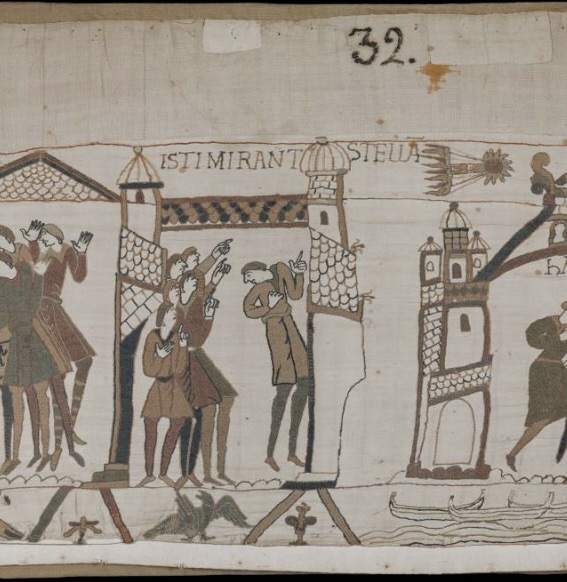 32.
ISTI MIRANT STELLÃ
hA